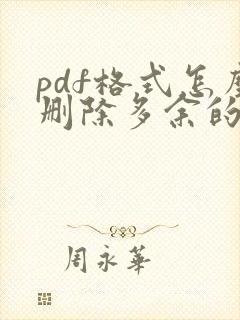 pdf格式怎麼
删除多余的
周永華